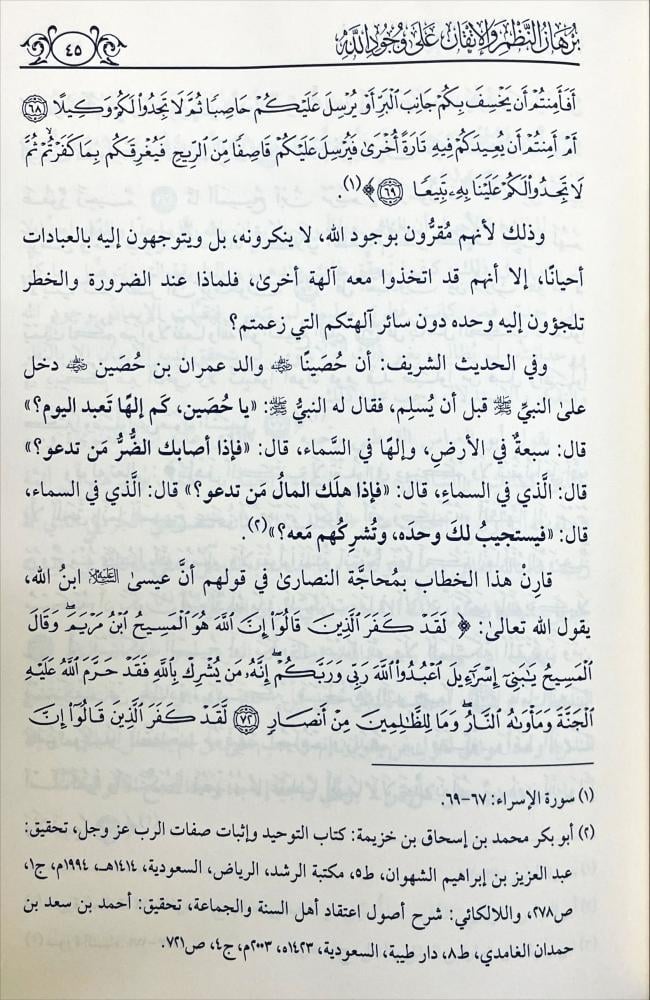 برهان النظم والإتقان على وجود الله
٤٥
أَفَأَمِنتُمْ أَن يَخْسِفَ بِكُمْ جَانِبَ ٱلْبَرِّ أَوْ يُرْسِلَ عَلَيْكُمْ حَاصِبًا ثُمَّ لَا تَجِدُواْ لَكُمْ وَكِيلًا ٦٨
أَمْ أَمِنتُمْ أَن يُعِيدَكُمْ فِيهِ تَارَةً أُخْرَىٰ فَيُرْسِلَ عَلَيْكُمْ قَاصِفًا مِّنَ ٱلرِّيحِ فَيُغْرِقَكُم بِمَا كَفَرْتُمْ ثُمَّ
لَا تَجِدُواْ لَكُمْ عَلَيْنَا بِهِۦ تَبِيعًا ٦٩﴾(١).
وذلك لأنهم مُقرُّون بوجود الله، لا ينكرونه، بل ويتوجهون إليه بالعبادات
أحيانًا، إلا أنهم قد اتخذوا معه آلهة أخرىٰ، فلماذا عند الضرورة والخطر
تلجؤون إليه وحده دون سائر آلهتكم التي زعمتم؟
وفي الحديث الشريف: أن حُصَينًا ﵁ والد عمران بن حُصَين ﵁ دخل
علىٰ النبيِّ ﷺ قبل أن يُسلِم، فقال له النبيُّ ﷺ: «يا حُصَين، كَم إلهًا تَعبد اليوم؟»
قال: سبعةٌ في الأرضِ، وإلهًا في السَّماء، قال: «فإذا أصابك الضُّرُّ مَن تدعو؟»
قال: الَّذي في السماءِ، قال: «فإذا هلَك المالُ مَن تدعو؟» قال: الَّذي في السماء،
قال: «فيستجيبُ لكَ وحدَه، وتُشرِكُهم معه؟»(٢).
قارِنْ هذا الخطاب بمُحاجَّة النصارىٰ في قولهم أنَّ عيسىٰ ﵇ ابنُ الله،
يقول الله تعالىٰ: ﴿لَقَدْ كَفَرَ ٱلَّذِينَ قَالُوٓاْ إِنَّ ٱللَّهَ هُوَ ٱلْمَسِيحُ ٱبْنُ مَرْيَمَۖ وَقَالَ
ٱلْمَسِيحُ يَٰبَنِيٓ إِسْرَٰٓءِيلَ ٱعْبُدُواْ ٱللَّهَ رَبِّي وَرَبَّكُمْۖ إِنَّهُۥ مَن يُشْرِكْ بِٱللَّهِ فَقَدْ حَرَّمَ ٱللَّهُ عَلَيْهِ
ٱلْجَنَّةَ وَمَأْوَىٰهُ ٱلنَّارُۖ وَمَا لِلظَّٰلِمِينَ مِنْ أَنصَارٍ ٧٢ لَّقَدْ كَفَرَ ٱلَّذِينَ قَالُوٓاْ إِنَّ
(١) سورة الإسراء: ٦٧-٦٩.
(٢) أبو بكر محمد بن إسحاق بن خزيمة: كتاب التوحيد وإثبات صفات الرب عز وجل، تحقيق:
عبد العزيز بن إبراهيم الشهوان، ط٥، مكتبة الرشد، الرياض، السعودية، ١٤١٤هـ، ١٩٩٤م، ج١،
ص٢٧٨، واللالكائي: شرح أصول اعتقاد أهل السنة والجماعة، تحقيق: أحمد بن سعد بن
حمدان الغامدي، ط٨، دار طيبة، السعودية، ١٤٢٣ه، ٢٠٠٣م، ج٤، ص٧٢١.